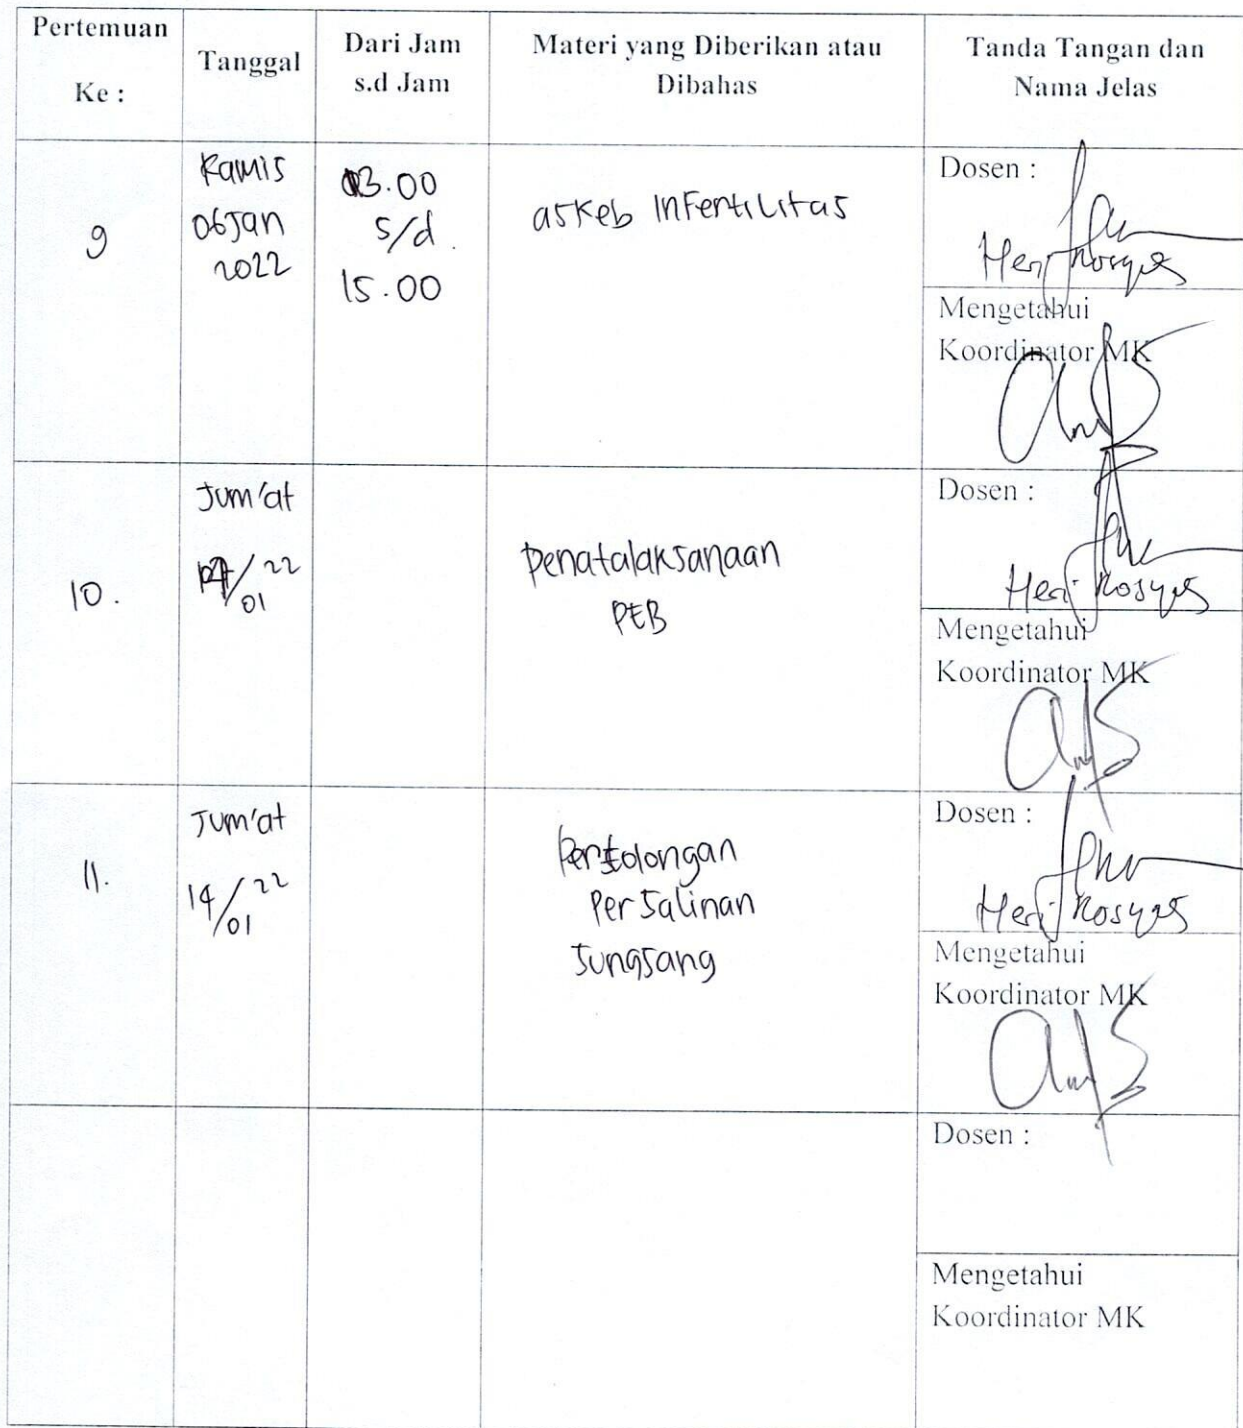 Pertemuan
Ke :
Tanggal
Dari Jam
s.d Jam
Materi yang Diberikan atau
Dibahas
Tanda Tangan dan
Nama Jelas
9
Kamis
06 Jan
2022
13.00
s/d.
15.00
askeb Infertilitas
Dosen :
Heri Rosyati
Mengetahui
Koordinator MK
10.
Jum'at
/01 22
Penatalaksanaan
PEB
Dosen :
Heri Rosyati
Mengetahui
Koordinator MK
11.
Jum'at
14/01 22
Pertolongan
Persalinan
Sungsang
Dosen :
Heri Rosyati
Mengetahui
Koordinator MK
Dosen :
Mengetahui
Koordinator MK